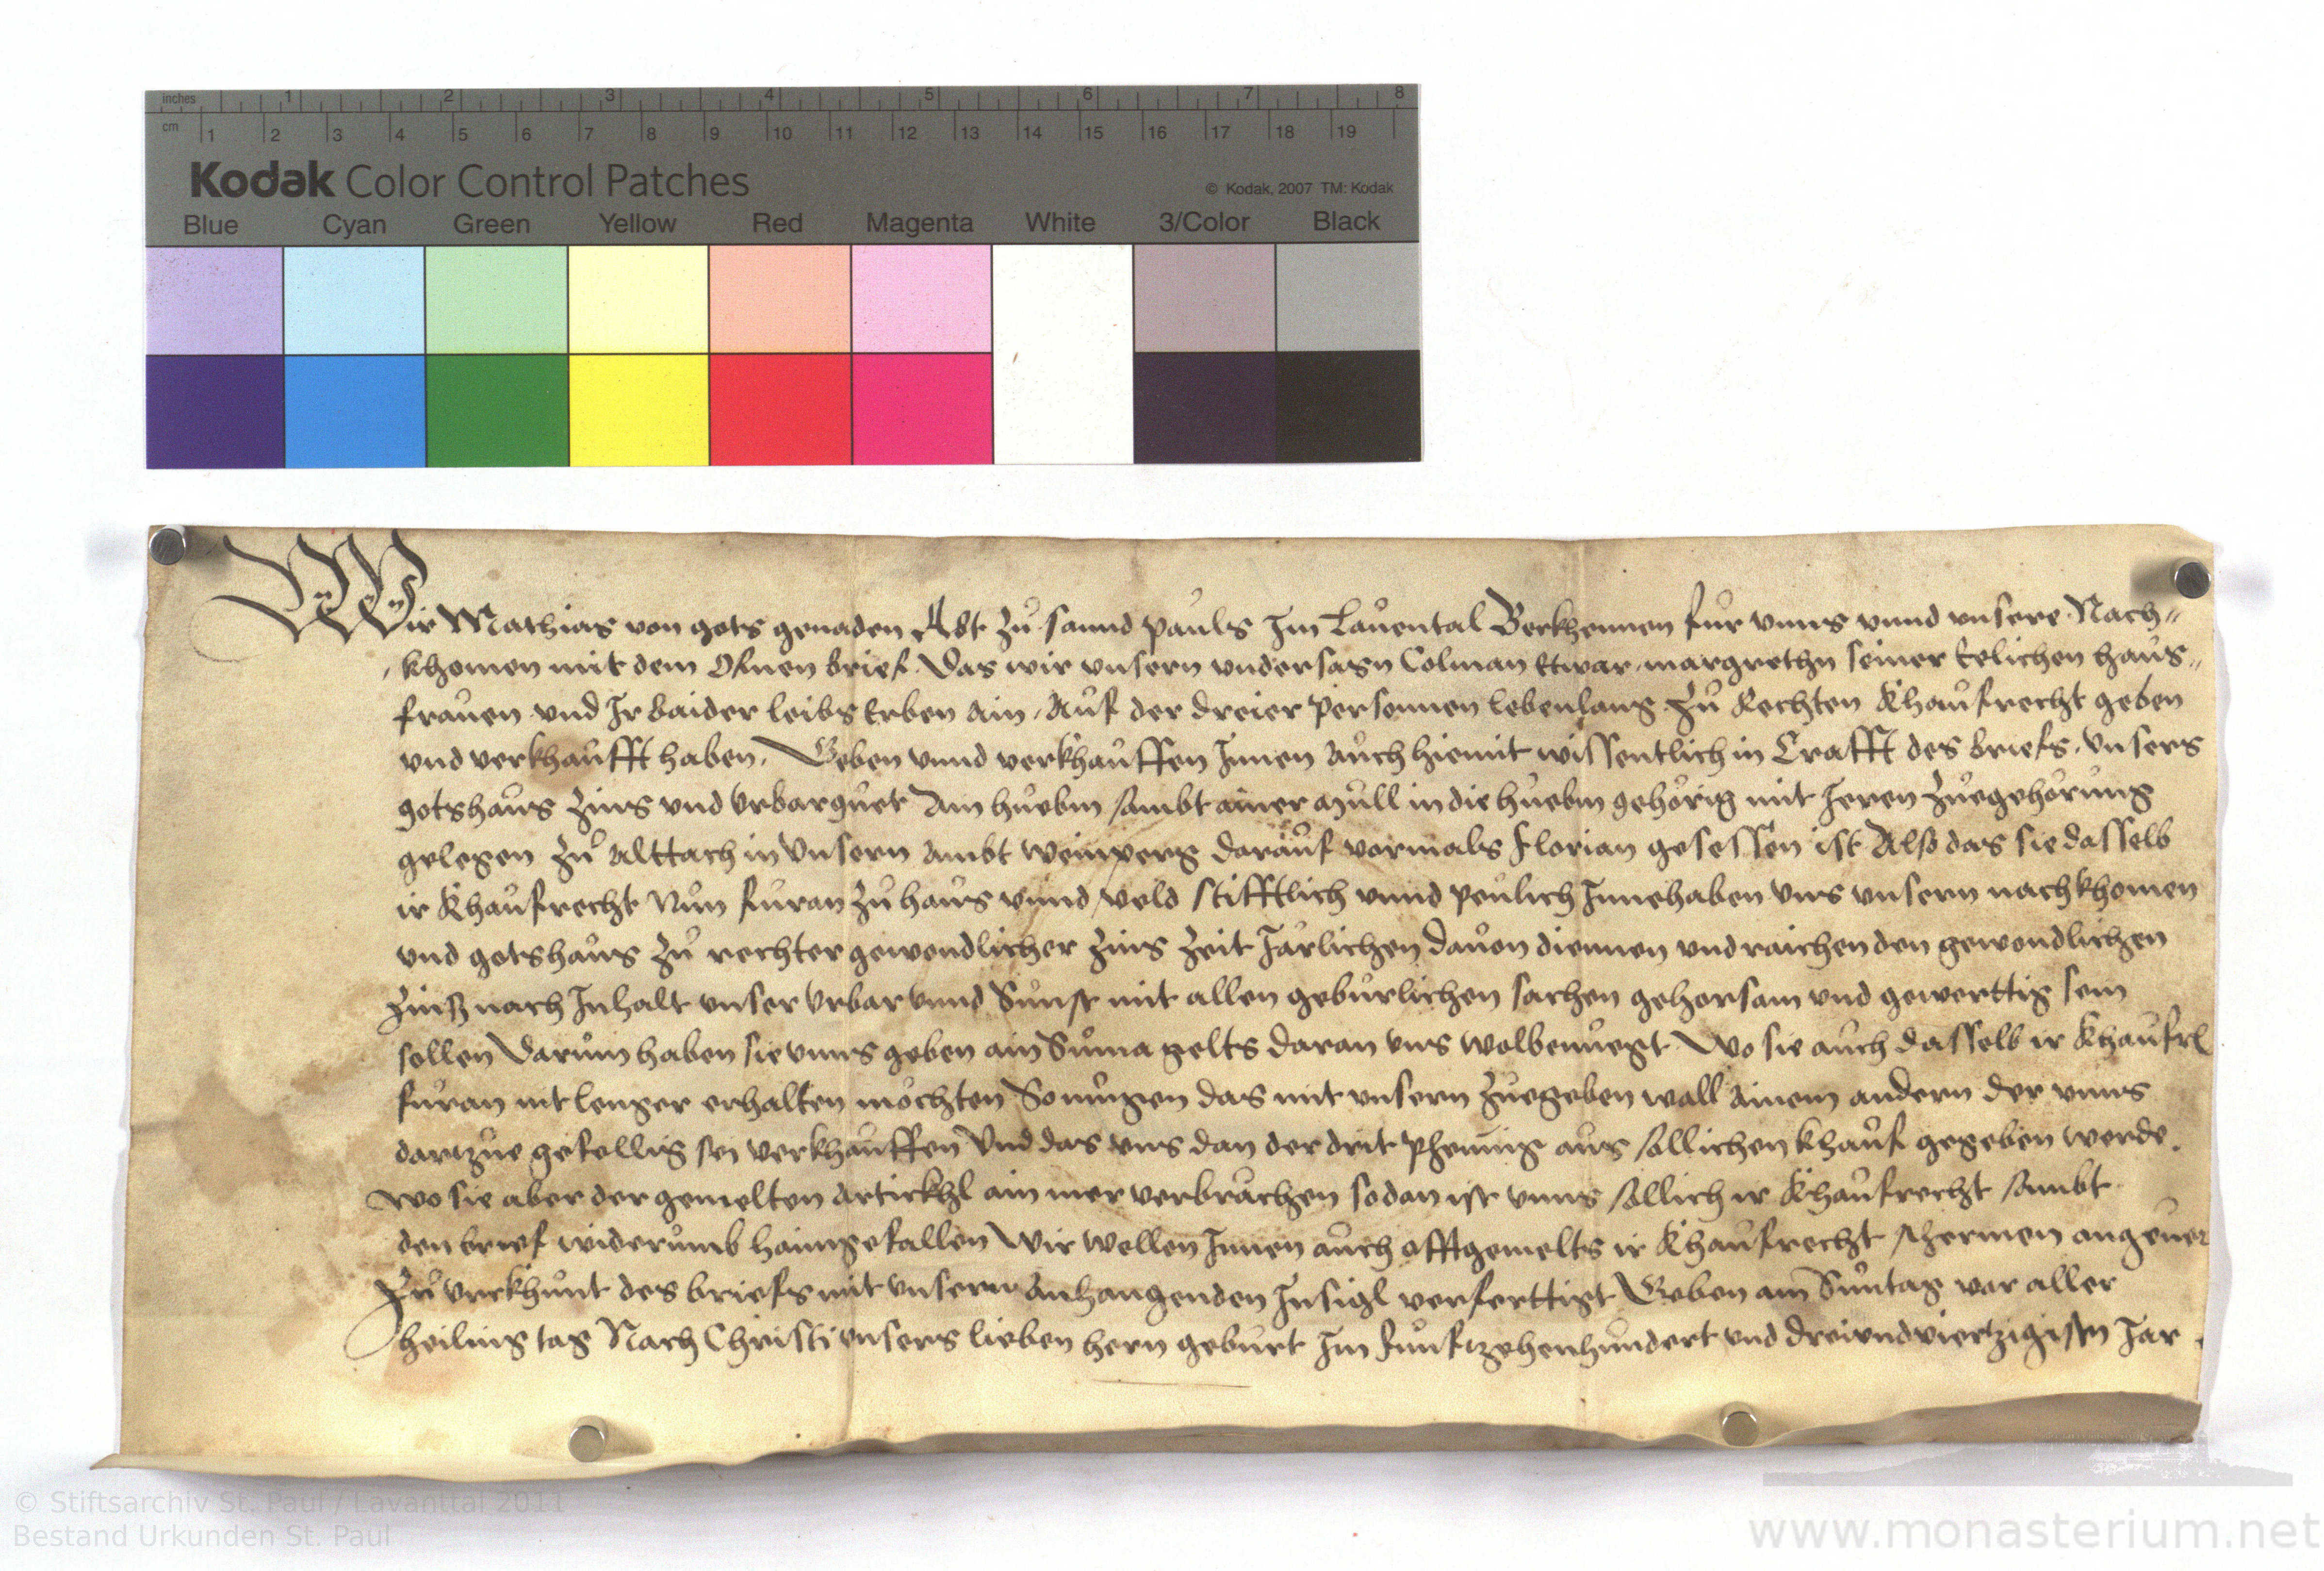 inches 1 2 3 4 5 6 7 8
cm 1 2 3 4 5 6 7 8 9 10 11 12 13 14 15 16 17 18 19
Kodak Color Control Patches © Kodak, 2007 TM: Kodak
Blue Cyan Green Yellow Red Magenta White 3/Color Black
Wir Mathias von gots genaden Abt zů sannd Pauls Im Lauental Bekhennen für vnns vnnd vnsere Nach-
khomen mit dem Ofnen brief Das wir vnsern vndersasn Colman margrethn seiner Eelichen haus-
frauen vnd Ir baider leibs Erben ain, Auf der dreier personnen lebenlang zů Rechten Khaufrecht geben
vnd verkhaufft haben, Geben vnnd verkhauffen Innen auch hiemit wissentlich in Crafft des briefs, vnsers
gotshaus zins vnd vrbarguet Ain huebm sambt ainer mull in die huebm gehörig mit Ieren zuegehorung
gelegen zů Alttach in vnsern ambt Weinperg darauf vormals Florian gesessen ist Also das sie dasselb
ir Khaufrecht Nun furan zů haus vnnd veld stifftlich vnnd peulich Innehaben vns vnsern nachkhomen
vnd gotshaus zů rechter gewendlicher zins zeit Järlichen dauon diennen vnd raichen den gewondlichen
zinß nach Inhalt vnser vrbar vnnd Sunst mit allen geburlichen sachen gehorsam vnd gewerttig sein
sollen Darum haben sie vnns geben ain Suma gelts daran vns wolbenuegt Wo sie auch dasselb ir Khaufr
furan nit lenger erhalten möchten So mugen das mit vnsern zuegeben woll ainem andern der vnns
dartzue gefellig sei verkhauffen Vnd das vns dan der drit phening aus sollichen khauf gegeben werde.
Wo sie aber der gemelten Artickhl ain mer verbrachen sodan ist vnns sollich ir Khaufrecht sambt
den brief widerumb haimgefallen Wir wellen Innen auch offtgemelts ir Khaufrecht schermen angeuer
Zů vrkhunt des briefs mit vnserm Anhangenden Insigl verferttigt Geben am Suntag vor aller
heiling tag Nach Christi vnsers lieben hern geburt Im funftzehenhundert vnd dreiundviertzigisten Jar
© Stiftsarchiv St. Paul / Lavanttal 2011
Bestand Urkunden St. Paul
www.monasterium.net